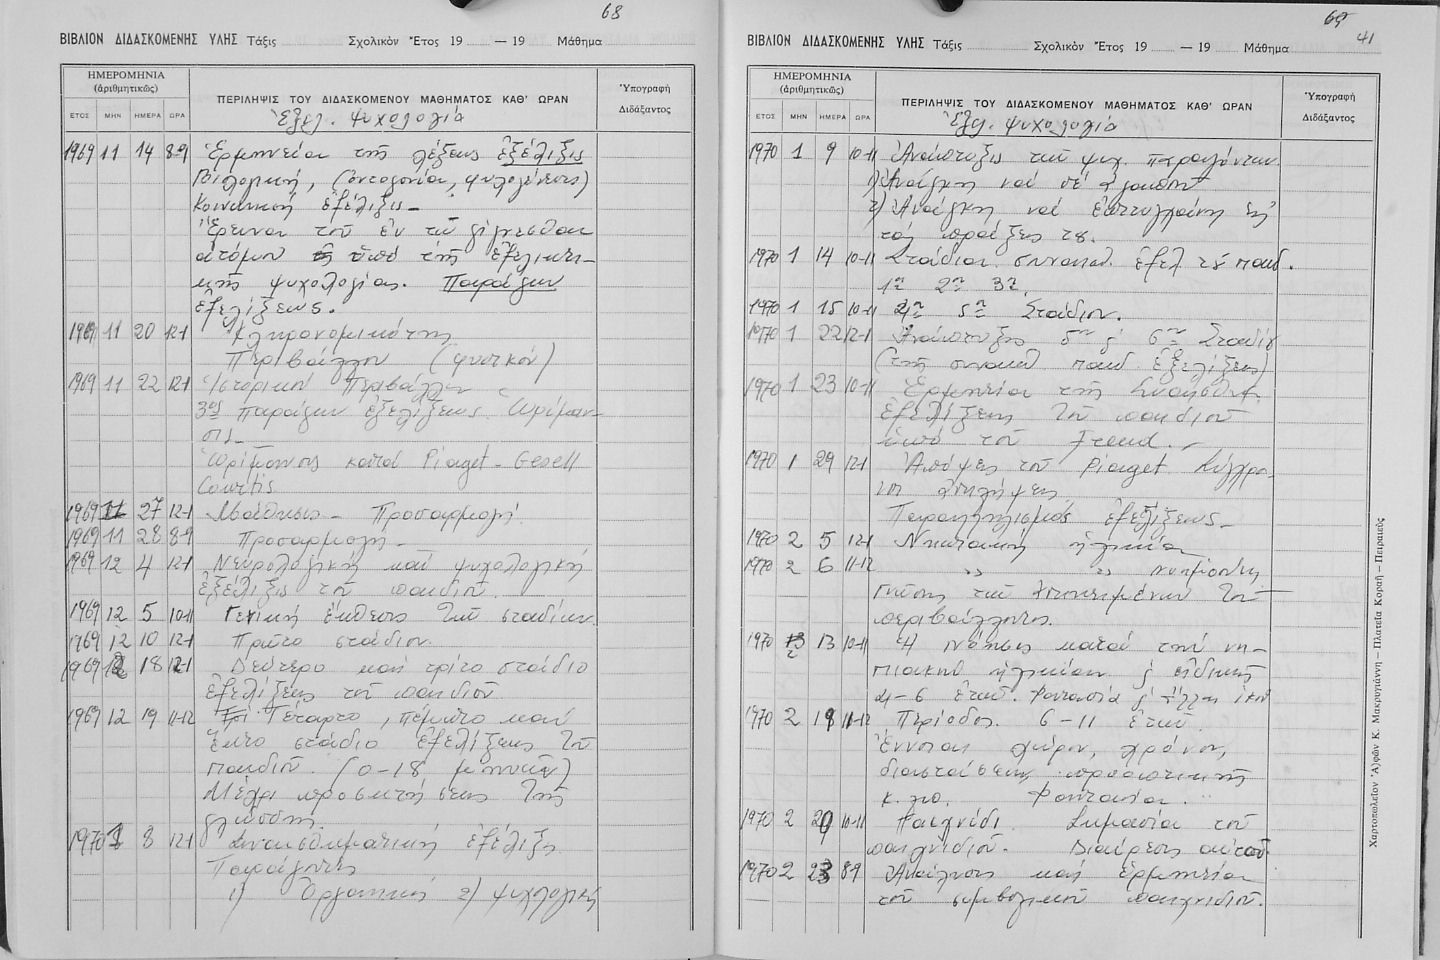 68
ΒΙΒΛΙΟΝ ΔΙΔΑΣΚΟΜΕΝΗΣ ΥΛΗΣ Τάξις Σχολικὸν Ἔτος 19 — 19 Μάθημα
ΗΜΕΡΟΜΗΝΙΑ
(ἀριθμητικῶς)
ΕΤΟΣ ΜΗΝ ΗΜΕΡΑ ΩΡΑ
ΠΕΡΙΛΗΨΙΣ ΤΟΥ ΔΙΔΑΣΚΟΜΕΝΟΥ ΜΑΘΗΜΑΤΟΣ ΚΑΘ' ΩΡΑΝ
Ὑπογραφὴ
Διδάξαντος
Ἐξελ. ψυχολογία
1969 11 14 8-9 Ἑρμηνεία τῆς λέξεως ἐξέλιξις
Βιολογική, (ὀντογονία, φυλογένεσις)
Κοινωνική ἐξέλιξις -
Ἔρευνα τοῦ ἐν τῷ γίγνεσθαι
ἀτόμου ὑπό τῆς ἐξελικτι-
κῆς ψυχολογίας. Παράγων
ἐξελίξεως.
1969 11 20 12-1 Κληρονομικότης
Περιβάλλον (φυσικόν)
1969 11 22 12-1 Ἱστορικόν Περιβάλλον
3ος παράγων ἐξελίξεως Ὡρίμαν-
σις -
Ὡρίμανσις κατά Piaget - Gesell
Courtis
1969 11 27 12-1 Μάθησις - Προσαρμογή
1969 11 28 8-9 Προσαρμογή -
1969 12 4 12-1 Νευρολογική καί ψυχολογική
ἐξέλιξις τοῦ παιδιοῦ.
1969 12 5 10-11 Γενική ἔκθεσις τῶν σταδίων.
1969 12 10 12-1 Πρῶτο στάδιον.
1969 12 18 12-1 Δεύτερο καί τρίτο στάδιο
ἐξελίξεως τοῦ παιδιοῦ
1969 12 19 11-12 Τέταρτο, πέμπτο καί
ἕκτο στάδιο ἐξελίξεως τοῦ
παιδιοῦ. (0-18 μηνῶν)
Μέχρι προσκτήσεως τῆς
γλώσσης.
1970 1 8 12-1 Συναισθηματική ἐξέλιξις
Παράγοντες
1) Ὀργανικός 2) ψυχολογικός
69
41
ΒΙΒΛΙΟΝ ΔΙΔΑΣΚΟΜΕΝΗΣ ΥΛΗΣ Τάξις Σχολικὸν Ἔτος 19 — 19 Μάθημα
ΗΜΕΡΟΜΗΝΙΑ
(ἀριθμητικῶς)
ΕΤΟΣ ΜΗΝ ΗΜΕΡΑ ΩΡΑ
ΠΕΡΙΛΗΨΙΣ ΤΟΥ ΔΙΔΑΣΚΟΜΕΝΟΥ ΜΑΘΗΜΑΤΟΣ ΚΑΘ' ΩΡΑΝ
Ὑπογραφὴ
Διδάξαντος
Ἐξελ. ψυχολογία
1970 1 9 10-11 Ἀνάπτυξις τῶν ψυχ. παραγόντων
1) Ἀνάγκη νά
2) Ἀνάγκη νά
τάς πράξεις του.
1970 1 14 10-11 Στάδια συναισ. ἐξελ τοῦ παιδ.
1ον 2ον 3ον.
1970 1 15 10-11 4ον 5ον Στάδιον.
1970 1 22 12-1 Ἀνάπτυξις 5ου 6ου Σταδίου
(τῆς συναισ παιδ. ἐξελίξεως)
1970 1 23 10-11 Ἑρμηνεία τῆς συναισθ.
ἐξελίξεως τοῦ παιδιοῦ
ὑπό τοῦ Freud. -
1970 1 29 12-1 Ἀπόψεις τοῦ Piaget
Παραλληλισμός ἐξελίξεως -
1970 2 5 12-1 Νηπιακή ἡλικία
1970 2 6 11-12 " " νοημοσύνη
Γνῶσις τῶν ἀντικειμένων τοῦ
περιβάλλοντος.
1970 2 13 10-11 Ἡ νόησις κατά τήν νη-
πιακήν ἡλικίαν εἰδικῶς
4-6 ἐτῶν. Φαντασία
1970 2 19 11-12 Περίοδος. 6-11 ἐτῶν
Ἔννοιαι χώρου, χρόνου,
διαστάσεως, προοπτικῆς
κ.λπ. Φαντασία.
1970 2 20 10-11 Παιχνίδι. Σημασία τοῦ
παιχνιδιοῦ. Διαίρεσις αὐτοῦ.
1970 2 23 8-9 Ἀνάλυσις καί ἑρμηνεία
τοῦ συμβολικοῦ παιχνιδιοῦ.
Χαρτοπωλεῖον Ἀφῶν Κ. Μακρυγιάννη – Πλατεῖα Κοραῆ – Πειραιεὺς